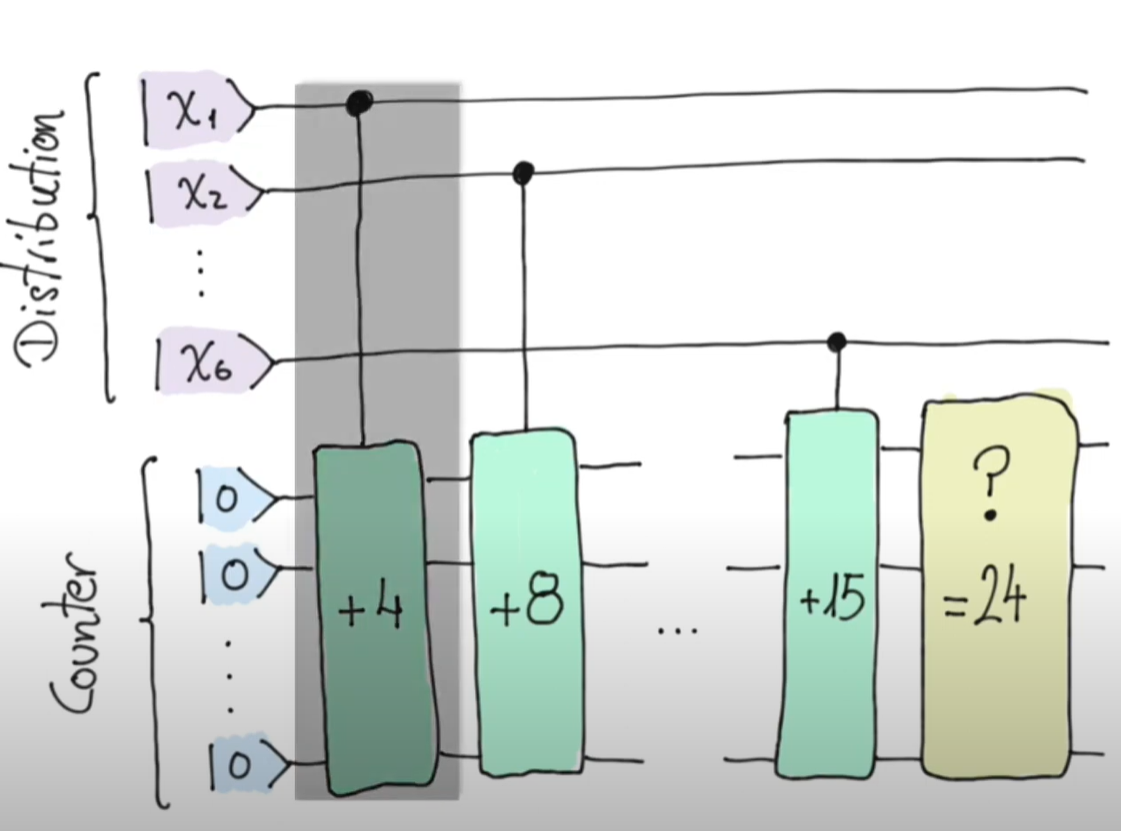 Distribution
|χ₁
|χ₂
⋮
|χ₆
Counter
|0
|0
⋮
|0
+4
+8
...
+15
?
=24